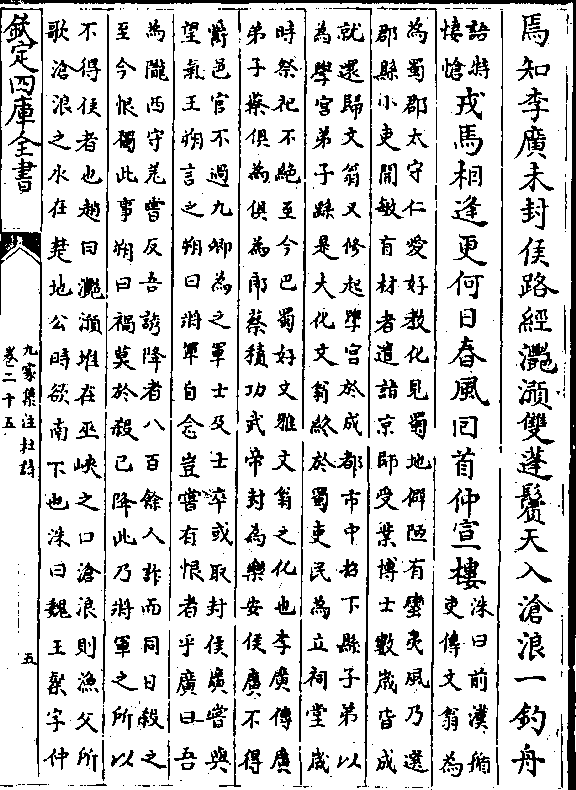 焉知李廣未封侯路經灔澦雙蓬鬢天入滄浪一釣舟
語特
悽愴
戎馬相逢更何日春風回首仲宣樓
洙曰前漢循
吏傳文翁為
為蜀郡太守仁愛好教化見蜀地僻陋有蠻夷風乃選
郡縣小吏開敏有材者遣詣京師受業博士數歲皆成
就還歸文翁又修起學宮於成都市中招下縣子弟以
為學宮弟子繇是大化文翁終於蜀吏民為立祠堂歲
時祭祀不絕至今巴蜀好文雅文翁之化也李廣傳廣
弟子蔡俱為俱為郎蔡積功武帝封為樂安侯廣不得
爵邑官不過九卿為之軍士及士卒或取封侯廣嘗與
望氣王朔言之朔曰將軍自念豈嘗有恨者乎廣曰吾
為隴西守羌嘗反吾誘降者八百餘人詐而同日殺之
至今恨獨此事朔曰禍莫於殺已降此乃將軍之所以
不得侯者也趙曰灔澦堆在巫峽之口滄浪則漁父所
歌滄浪之水在楚地公時欲南下也洙曰魏王粲字仲
欽定四庫全書
九家集注杜詩
卷二十五
五